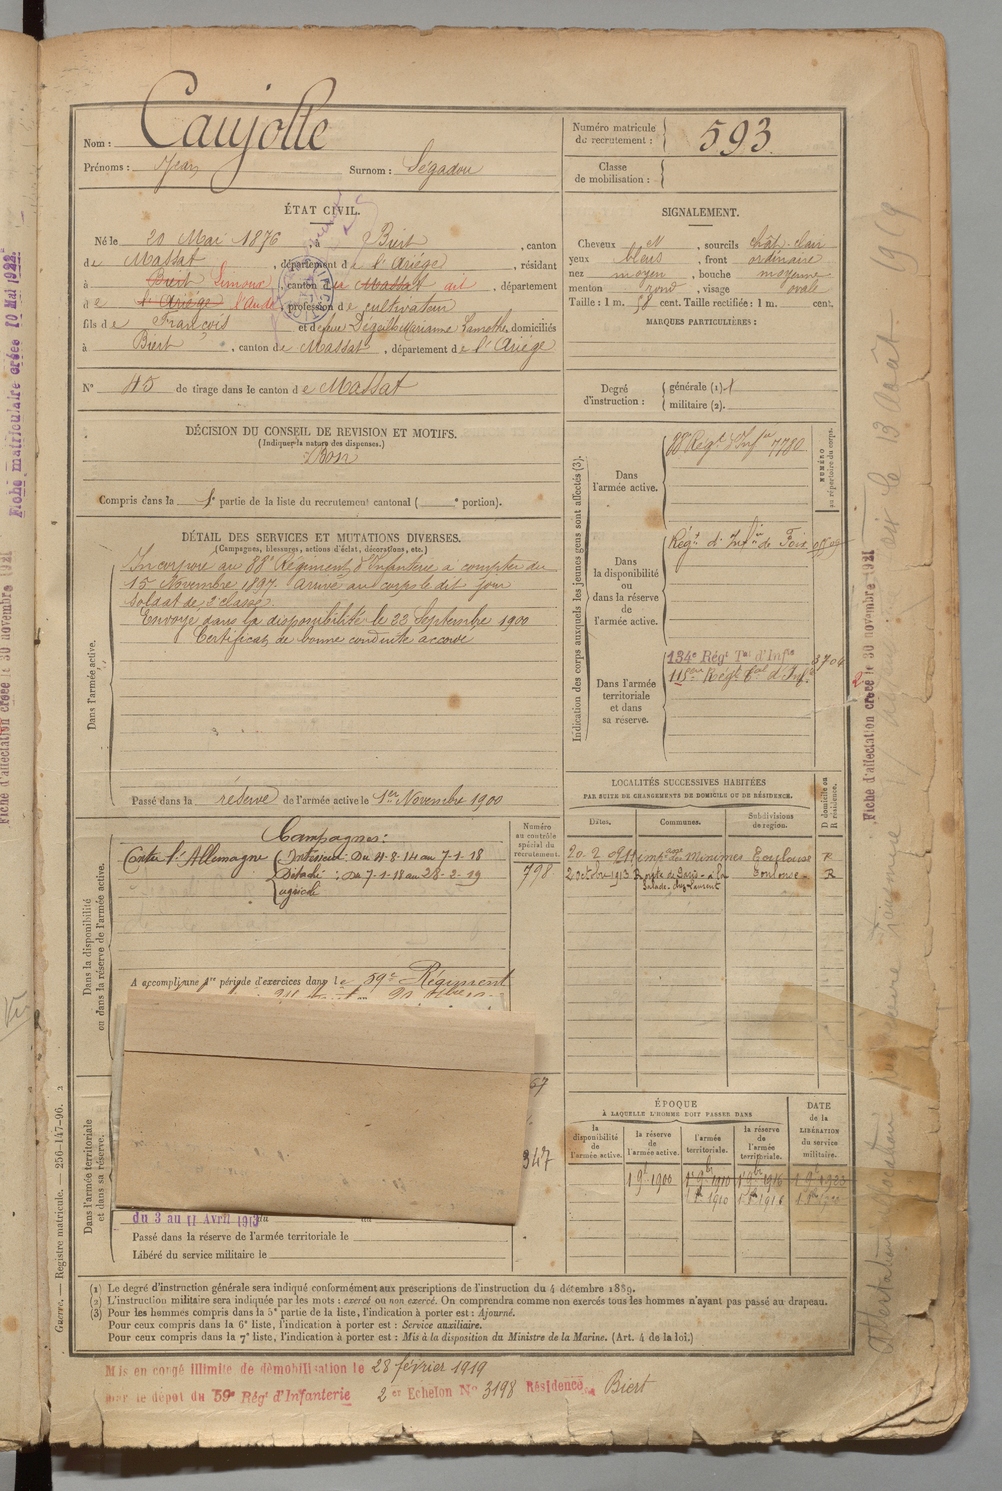 Nom : Caujolle
Numéro matricule du recrutement : 593.
Prénoms : Jean Surnom : Ségadou
Classe de mobilisation :
ÉTAT CIVIL.
Né le 20 Mai 1876, à Biert, canton
de Massat, département de l'Ariége, résidant
à Biert Limoux, canton du Massat dit, département
de l'Ariége l'Aude profession de cultivateur
fils de François et de Marianne Lamothe, domiciliés
à Biert, canton de Massat, département de l'Ariége
N° 45 de tirage dans le canton de Massat
SIGNALEMENT.
Cheveux N, sourcils chât-clair
yeux bleus, front ordinaire
nez moyen, bouche moyenne
menton rond, visage ovale
Taille : 1 m. 58 cent. Taille rectifiée : 1 m. cent.
MARQUES PARTICULIÈRES :
Degré d'instruction : générale (1). 1
militaire (2).
DÉCISION DU CONSEIL DE REVISION ET MOTIFS.
(Indiquer la nature des dispenses.)
Bon
Compris dans la 1e partie de la liste du recrutement cantonal ( e portion).
DÉTAIL DES SERVICES ET MUTATIONS DIVERSES.
(Campagnes, blessures, actions d'éclat, décorations, etc.)
Dans l'armée active.
Incorporé au 88e Régiment d'Infanterie à compter du
15 Novembre 1897. Arrivé au corps le dit jour
soldat de 2e classe.
Envoyé dans la disponibilité le 22 Septembre 1900
Certificat de bonne conduite accordé
Passé dans la réserve de l'armée active le 1er Novembre 1900
Indication des corps auxquels les jeunes gens sont affectés (3).
NUMÉRO au répertoire du corps.
Dans l'armée active.
88e Régt d'Infie 7780
Dans la disponibilité ou dans la réserve de l'armée active.
Régt d'Infie de Foix
Dans l'armée territoriale et dans sa réserve.
134e Régt Tal d'Infie 3704
115e Régt Tal d'Infie
Dans la disponibilité ou dans la réserve de l'armée active.
Numéro au contrôle spécial du recrutement.
798
Campagnes :
Contre l'Allemagne Intérieur : Du 4-8-14 au 7-1-18
Détaché : Du 7-1-18 au 28-2-19
agricole
A accompli une 1re période d'exercices dans le 59e Régiment
LOCALITÉS SUCCESSIVES HABITÉES
PAR SUITE DE CHANGEMENTS DE DOMICILE OU DE RÉSIDENCE.
Dates. Communes. Subdivisions de région. D domicile ou R résidence.
Minimes Toulouse R
2 octobre 1913 Route de Paris - à la Salade - chez Laurent Toulouse - R
Dans l'armée territoriale et dans sa réserve.
67
347
du 3 au 11 Avril 1913
Passé dans la réserve de l'armée territoriale le
Libéré du service militaire le
ÉPOQUE
À LAQUELLE L'HOMME DOIT PASSER DANS
DATE de la LIBÉRATION du service militaire.
la disponibilité de l'armée active. la réserve de l'armée active. l'armée territoriale. la réserve de l'armée territoriale.
1 9b 1900 1 9b 1910 1 9b 1916
(1) Le degré d'instruction générale sera indiqué conformément aux prescriptions de l'instruction du 4 décembre 1889.
(2) L'instruction militaire sera indiquée par les mots : exercé ou non exercé. On comprendra comme non exercés tous les hommes n'ayant pas passé au drapeau.
(3) Pour les hommes compris dans la 5e partie de la liste, l'indication à porter est : Ajourné.
Pour ceux compris dans la 6e liste, l'indication à porter est : Service auxiliaire.
Pour ceux compris dans la 7e liste, l'indication à porter est : Mis à la disposition du Ministre de la Marine. (Art. 4 de la loi.)
Guerre. — Registre matricule. — 256-147-96.
Mis en congé illimité de démobilisation le 28 février 1919
par le dépôt du 59e Régt d'Infanterie 2e Echelon N° 3198 Résidence Biert
Fiche matriculaire créée 10 Mai 1922
Fiche d'affectation créée le 30 novembre 1921
Fiche d'affectation créée le 30 novembre 1921